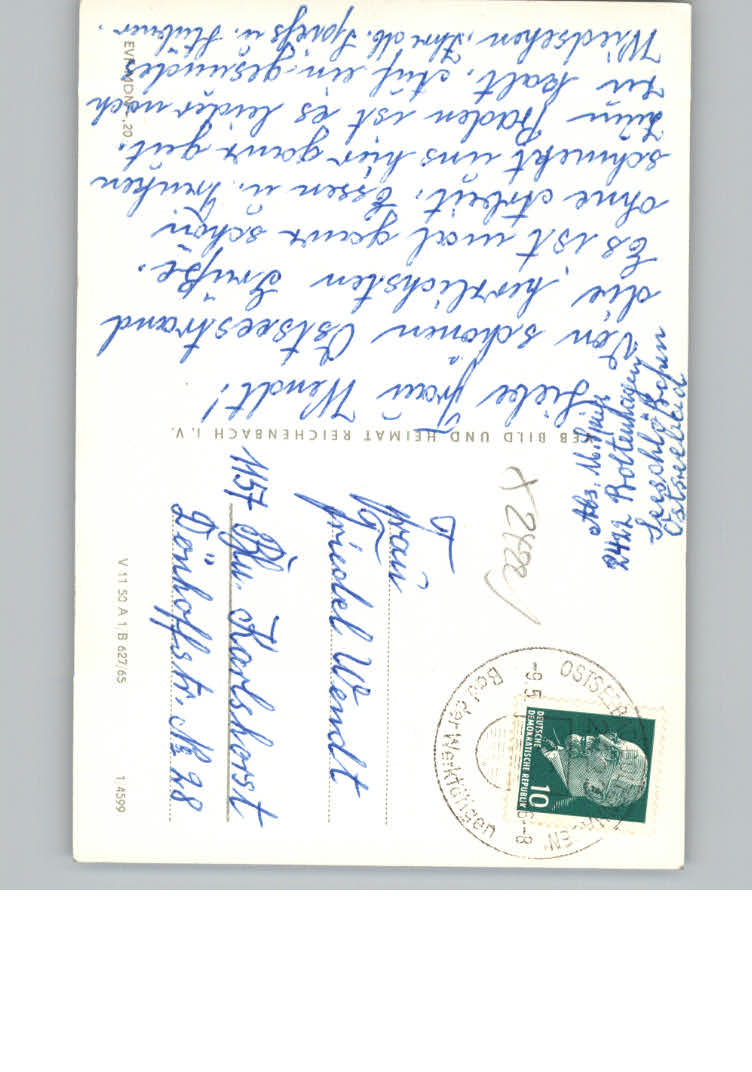 Liebe Frau Wendt!
Von schönen Ostseestrand
die herzlichsten Grüße.
Es ist mal ganz schön
ohne Arbeit. Essen u. trinken
schmekt uns hier ganz gut.
Zum Baden ist es leider noch
zu kalt. Auf ein gesundes
Wiedsehen, Ihre
Abs:
2422 Boltenhagen
Seeschlößchen
Ostseebad
VEB BILD UND HEIMAT REICHENBACH I. V.
EVP MDN -,20
Frau
Friedel Wendt
1157 Bln. Karlshorst
Dönhoffstr. № 28
V 11 50 A 1/B 627/65
1/4599
OSTSEEB
-9.5.
6-8
Bad der Werktätigen
DEUTSCHE
DEMOKRATISCHE REPUBLIK
10